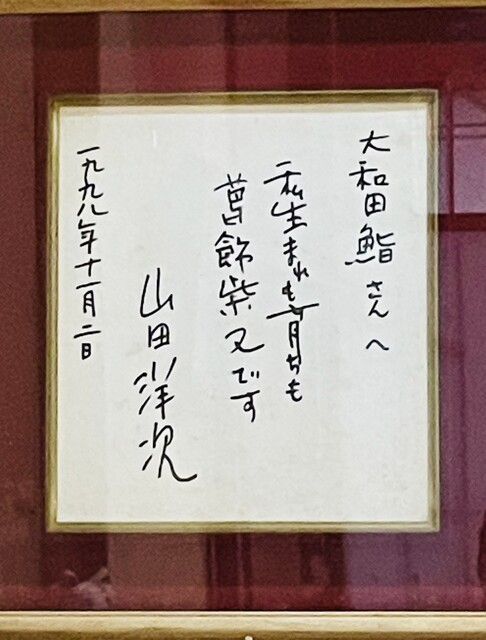 大和田鮨さんへ
私生まれも育ちも
葛飾柴又です
山田洋次
一九九八年十一月二日